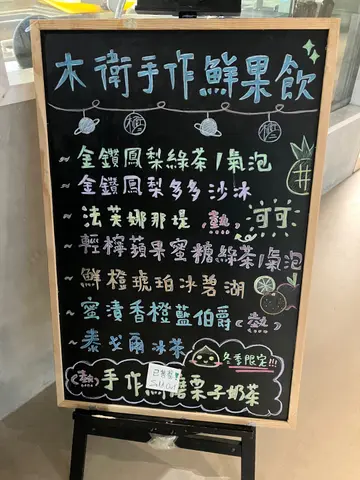 木衛手作鮮果飲
~金鑽鳳梨綠茶/氣泡
~金鑽鳳梨多多沙冰
~法芙娜那堤(熱)可可
~輕檸蘋果蜜糖綠茶/氣泡
~鮮橙琥珀冰碧湖
~蜜漬香橙藍伯爵(熱)
~泰戈爾冰茶
冬季限定!!!
(熱)手作 磨栗子奶茶
已售完
Sold Out